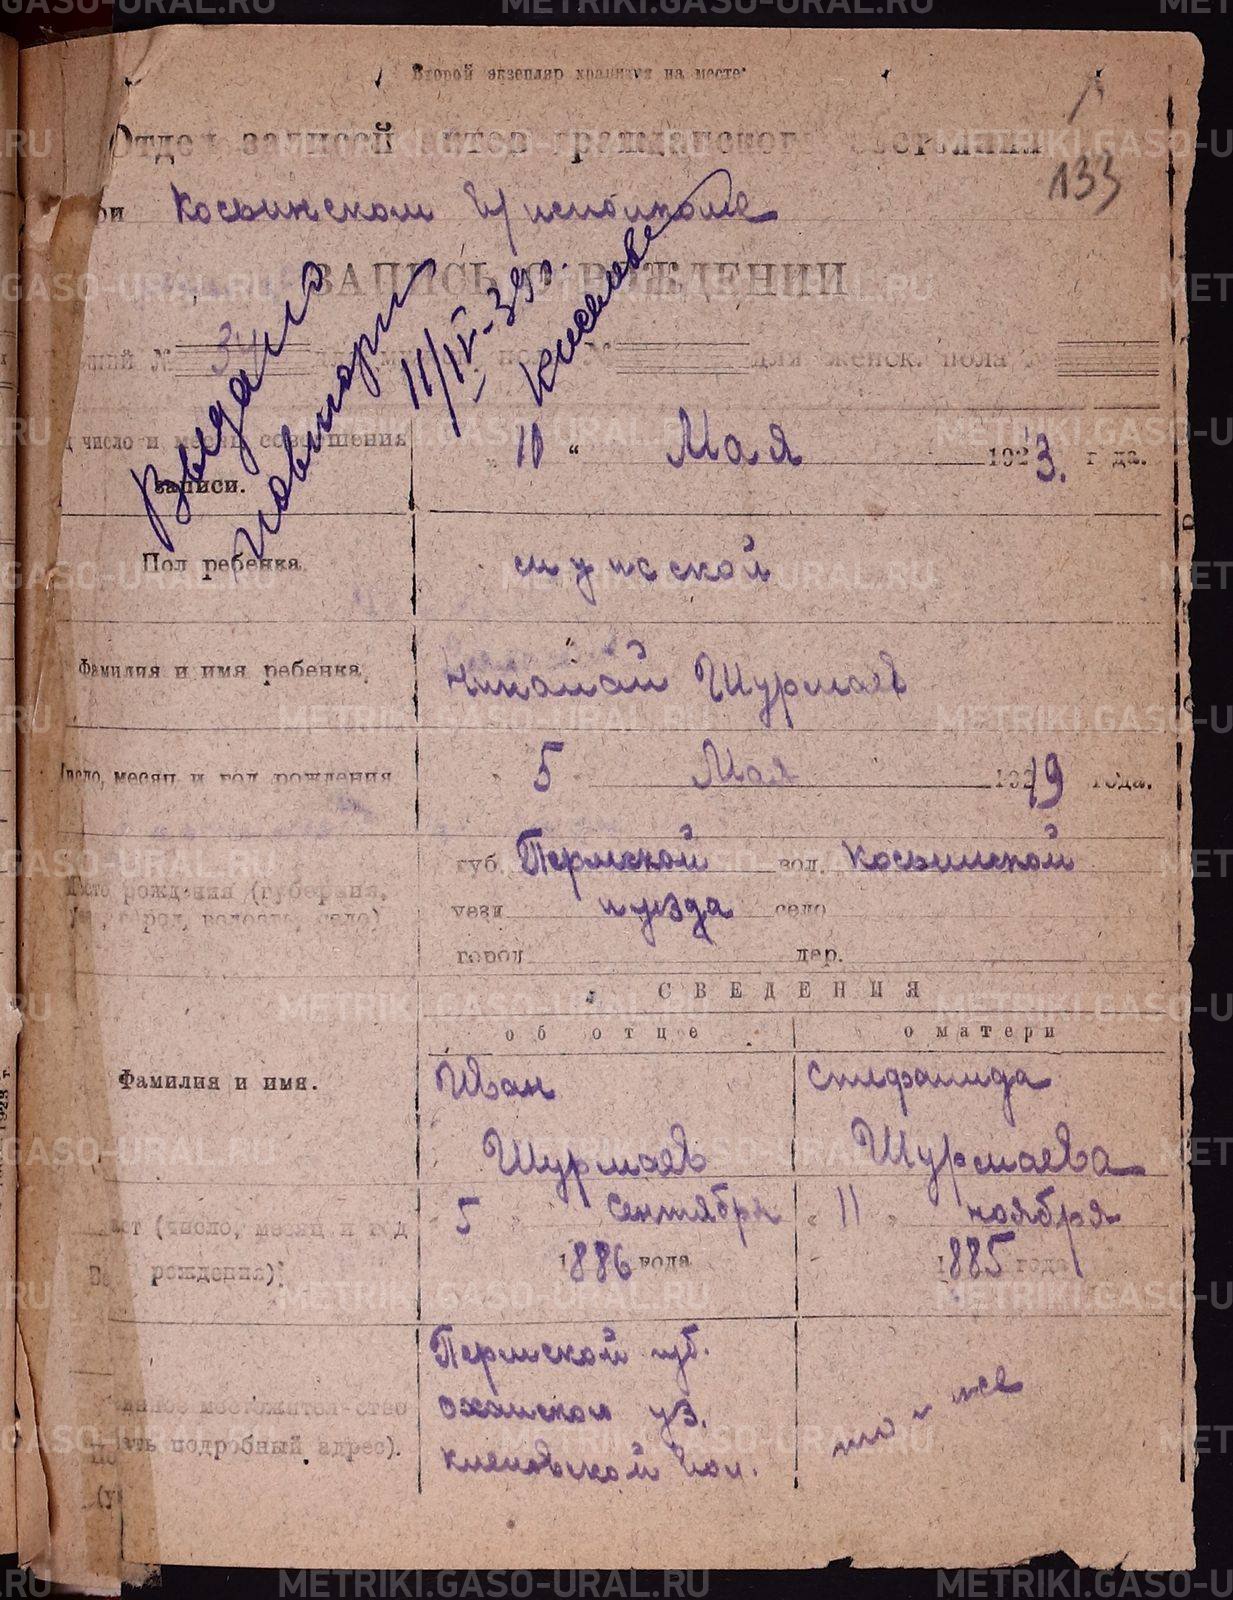 Второй экземпляр хранится на месте
Отдел записей актов гражданского состояния
133
при Косьинском В/исполкоме
ЗАПИСЬ О РОЖДЕНИИ
Выдано
повторно
11/IV-39г.
№ 34 для пола № для женск. пола №
число и месяц совершения записи. „ 10 “ Мая 1923. года.
Пол ребенка мужской
Фамилия и имя ребенка Николай Шурмаев
Число, месяц и год рождения „ 5 Мая 1919 года.
Место рождения (губерния, город, волость, село)
губ. Пермской вол. Косьинской
уезд уезда село
город дер.
СВЕДЕНИЯ
об отце о матери
Фамилия и имя. Иван Стефанида
Шурмаев Шурмаева
(число, месяц и год рождения) 5 „ Сентября „ 11 „ ноября
1886 года 1885 года
Пермской губ.
местожительство Оханском уз. то - же
подробный адрес). вол.
METRIKI.GASO-URAL.RU